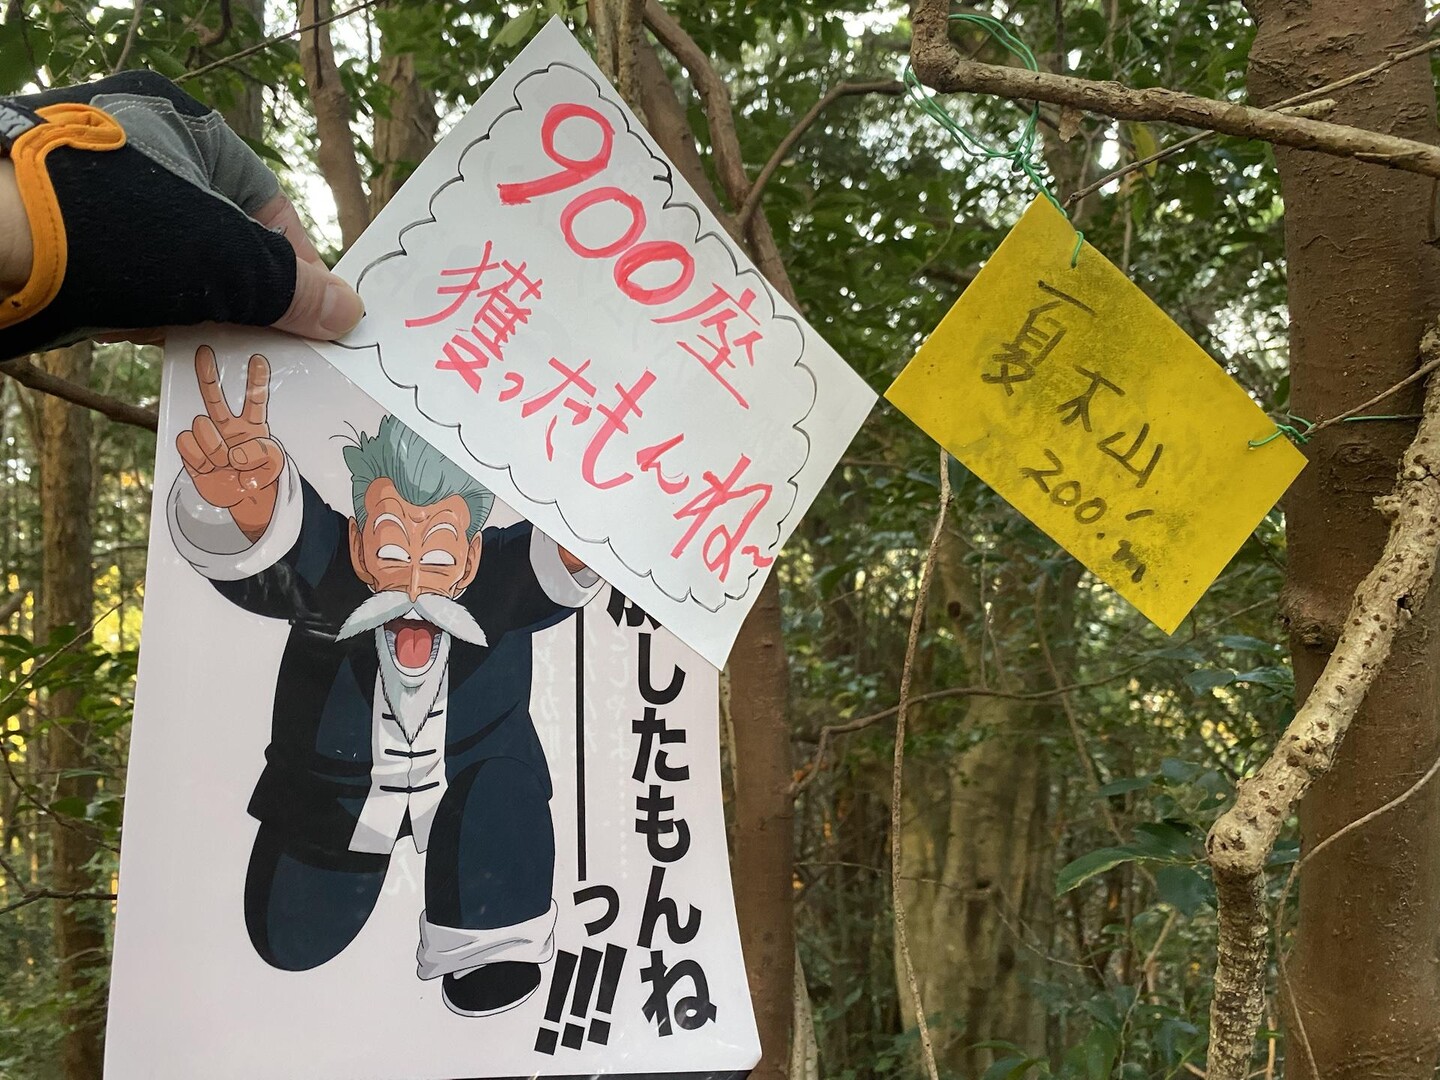 900座
獲ったもんね〜
夏木山
200.m
したもんね
っ!!!